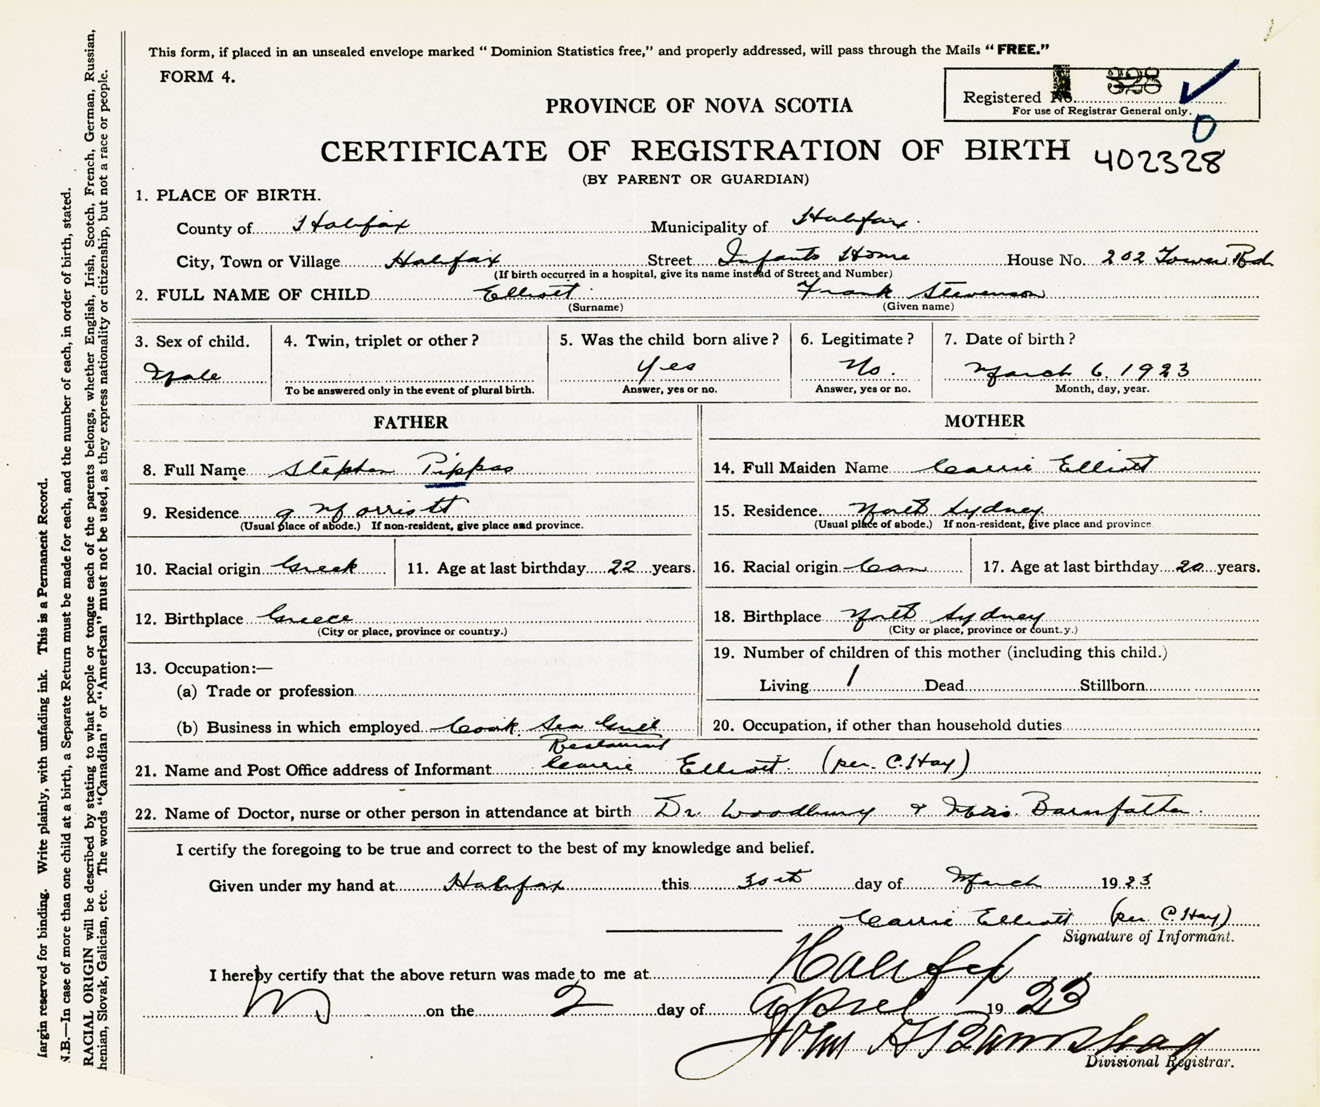 This form, if placed in an unsealed envelope marked " Dominion Statistics free," and properly addressed, will pass through the Mails " FREE."
FORM 4.
Registered No. 328
For use of Registrar General only.
PROVINCE OF NOVA SCOTIA
CERTIFICATE OF REGISTRATION OF BIRTH 402328
(BY PARENT OR GUARDIAN)
1. PLACE OF BIRTH.
County of Halifax Municipality of Halifax
City, Town or Village Halifax Street Infants Home House No. 202 Tower Rd
(If birth occurred in a hospital, give its name instead of Street and Number)
2. FULL NAME OF CHILD Elliott Frank Stevenson
(Surname) (Given name)
3. Sex of child. 4. Twin, triplet or other? 5. Was the child born alive? 6. Legitimate? 7. Date of birth?
Male Yes No. March 6, 1923
To be answered only in the event of plural birth. Answer, yes or no. Answer, yes or no. Month, day, year.
FATHER MOTHER
8. Full Name Stephen Pippas 14. Full Maiden Name Carrie Elliott
9. Residence 15. Residence North Sydney
(Usual place of abode.) If non-resident, give place and province. (Usual place of abode.) If non-resident, give place and province
10. Racial origin Greek 11. Age at last birthday 22 years. 16. Racial origin Can 17. Age at last birthday 20 years.
12. Birthplace Greece 18. Birthplace North Sydney
(City or place, province or country.) (City or place, province or county.)
19. Number of children of this mother (including this child.)
13. Occupation:—
(a) Trade or profession Living 1 Dead Stillborn
(b) Business in which employed Cook Sea Gull 20. Occupation, if other than household duties
Restaurant
21. Name and Post Office address of Informant Carrie Elliott (per. C. Hay)
22. Name of Doctor, nurse or other person in attendance at birth Dr. Woodbury & Miss Barnfather
I certify the foregoing to be true and correct to the best of my knowledge and belief.
Given under my hand at Halifax this 30th day of March 1923
Carrie Elliott (per C. Hay)
Signature of Informant.
I hereby certify that the above return was made to me at Halifax
on the 2 day of April 1923
Divisional Registrar.
Margin reserved for binding. Write plainly, with unfading ink. This is a Permanent Record.
N.B.—In case of more than one child at a birth, a Separate Return must be made for each, and the number of each, in order of birth, stated.
RACIAL ORIGIN will be described by stating to what people or tongue each of the parents belongs, whether English, Irish, Scotch, French, German, Russian,
henian, Slovak, Galician, etc. The words "Canadian" or "American" must not be used, as they express nationality or citizenship, but not a race or people.